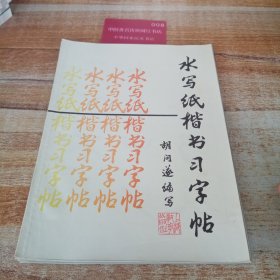 008
水写纸楷书习字帖
胡问遂编写
水写纸楷书习字帖
水写纸楷书习字帖
水写纸楷书习字帖
水写纸楷书习字帖